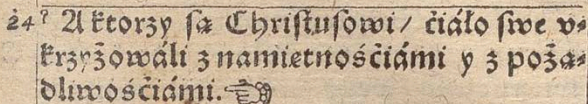 24 A ktorzy są Chriſtuſowi / ćiáło ſwe v⸗
krzyżowáli z namiętnośćiámi y z pożą⸗
dliwośćiámi. ☜